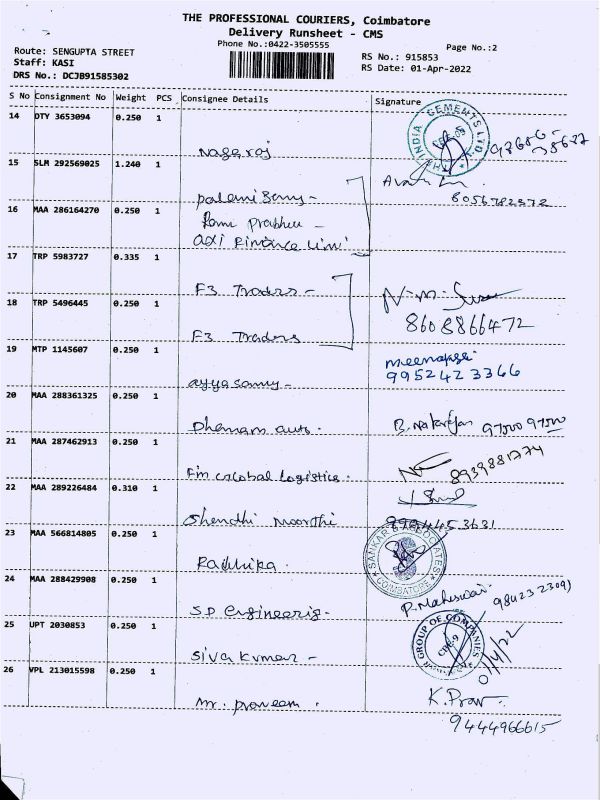 THE PROFESSIONAL COURIERS, Coimbatore
Delivery Runsheet - CMS
Phone No.:0422-3505555
Page No.:2
Route: SENGUPTA STREET
Staff: KASI
DRS No.: DCJB91585302
RS No.: 915853
RS Date: 01-Apr-2022
S No Consignment No Weight PCS Consignee Details Signature
14 DTY 3653094 0.250 1
Nagaraj
INDIA CEMENTS LTD
15 SLM 292569025 1.240 1
palanisamy -
8056782572
16 MAA 286164270 0.250 1
Rami prabhu -
adi Finance Limi
17 TRP 5983727 0.335 1
F3 Traders -
N. m.
18 TRP 5496445 0.250 1
8608866472
F3 Traders
19 MTP 1145607 0.250 1
meenakshi
9952423366
ayyasamy -
20 MAA 288361325 0.250 1
Dhanam auto.
97500 97500
21 MAA 287462913 0.250 1
Fm Global Logistics.
8939881774
22 MAA 289226484 0.310 1
Shendhi moorthi
8994453631
23 MAA 566814805 0.250 1
SANKAR & ASSOCIATES
COIMBATORE
Radhika.
24 MAA 288429908 0.250 1
P. Maheswari
SP Engineering-
25 UPT 2030853 0.250 1
GROUP OF COMPANIES
CBE-9
01/4/22
Siva kumar -
26 VPL 213015598 0.250 1
Mr. praveem.
K. Prav
9444966615